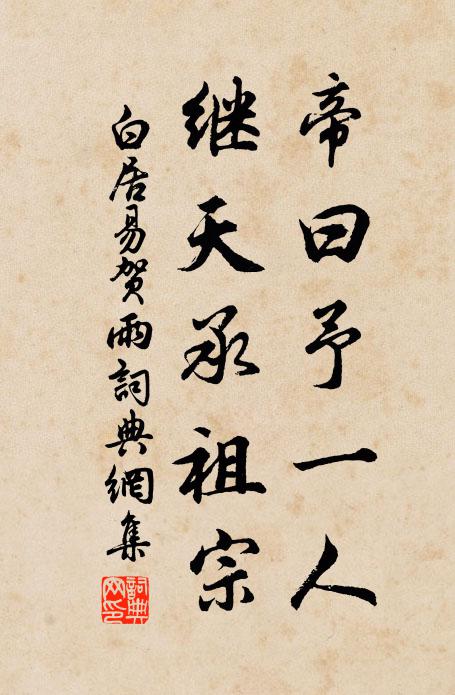 帝曰予一人
继天承祖宗
白居易贺雨詞典網集
詞典網印